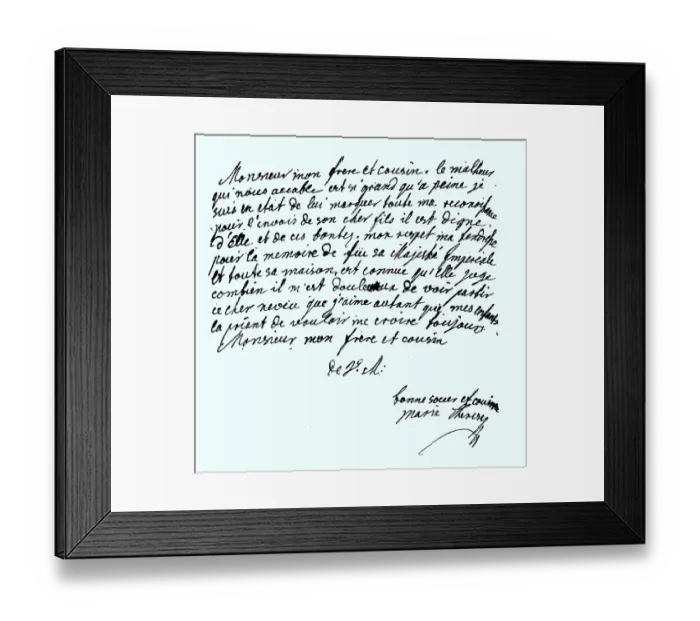 Monsieur mon frere et cousin. le malheur
qui nous accable est si grand qu'a peine je
suis en etat de lui marquer toute ma reconoissance
pour l'envois de son cher fils il est digne
d'Elle et de ces bontez. mon respet ma tendresse
pour la memoire de feu sa Majesté Imperiale
et toute sa maison, est connue qu'elle juge
combien il m'est douleureux de voir partir
ce cher neveu que j'aime autant que mes enfants
la prient de vouloir me croire toujours
Monsieur mon frere et cousin
de V. M:
bonne soeur et cousine
marie Therese